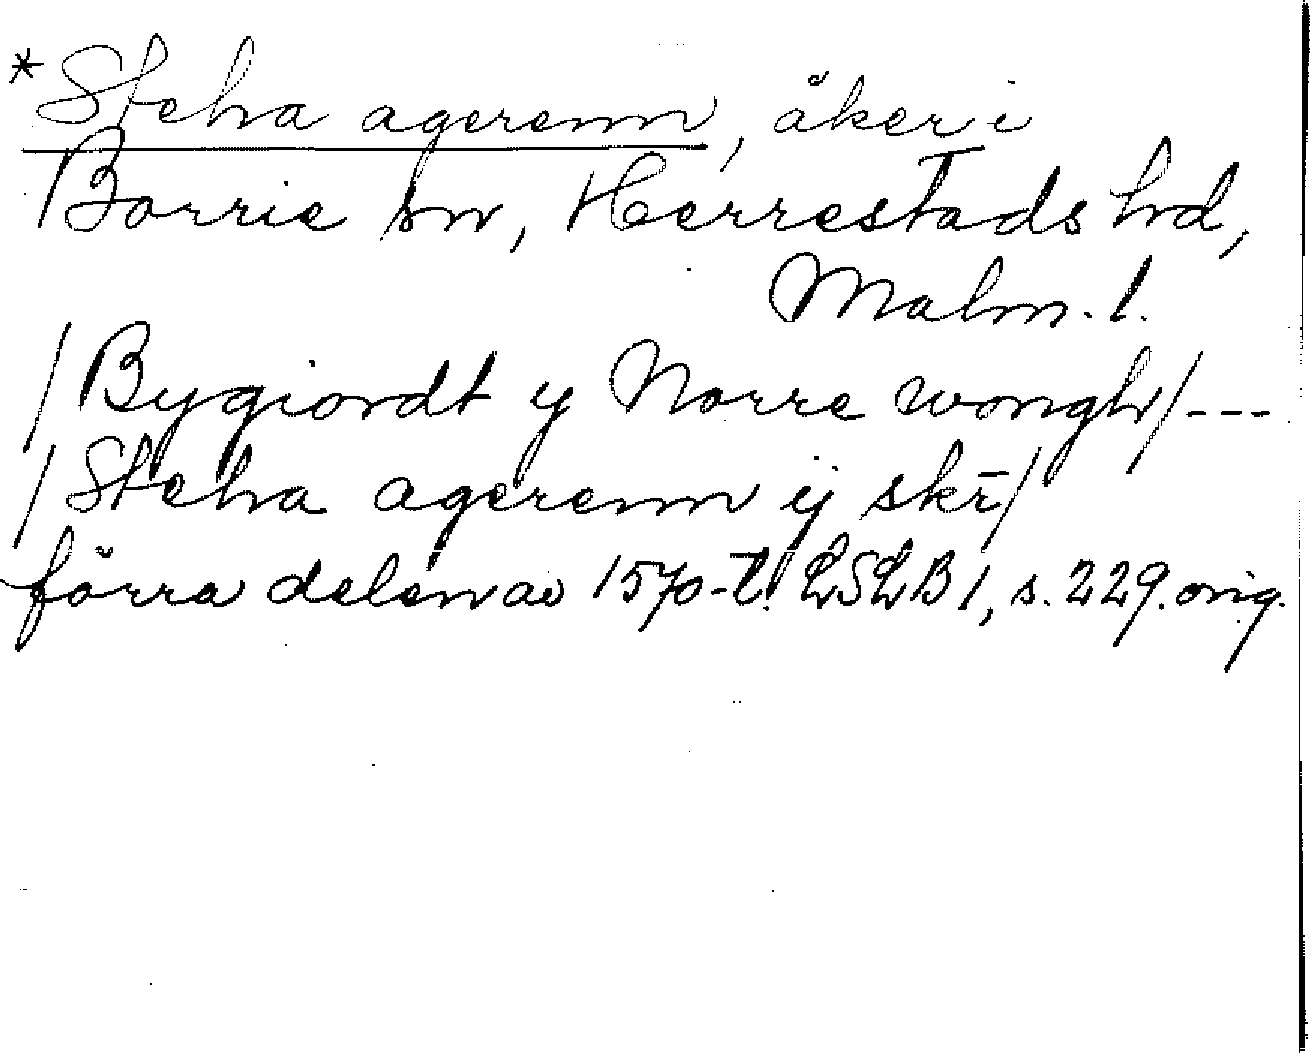 *Steha agerenn, åker i
Borrie sn, Herrestads hd,
Malm. l.
/Bygiordt y Norre wongh/---
/Steha agerenn ij skr̄/
förra delen av 1570-t. LSLB 1, s. 229. orig.